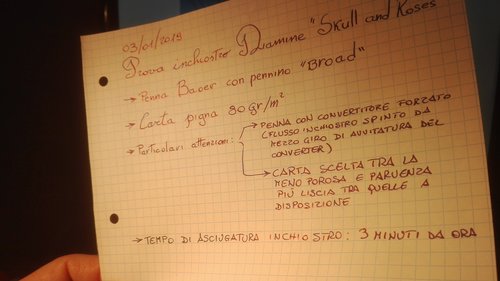 03/01/2019
Prova inchiostro Diamine "Skull and Roses
→ Penna Bauer con pennino "BROAD"
→ Carta pigna 80 gr/m²
→ Particolari attenzioni:
→ PENNA CON CONVERTITORE FORZATO
(FLUSSO INCHIOSTRO SPINTO DA
MEZZO GIRO DI AVVITATURA DEL
CONVERTER)
→ CARTA SCELTA TRA LA
MENO POROSA E PARVENZA
PIÙ LISCIA TRA QUELLE A
DISPOSIZIONE
→ TEMPO DI ASCIUGATURA INCHIOSTRO: 3 MINUTI DA ORA